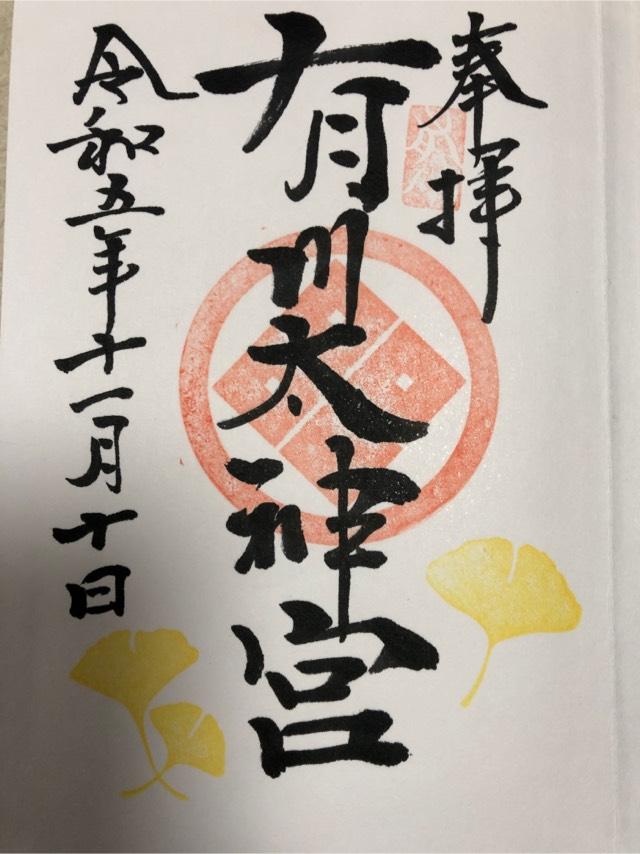 奉拝
有川太神宮
令和五年十一月十日